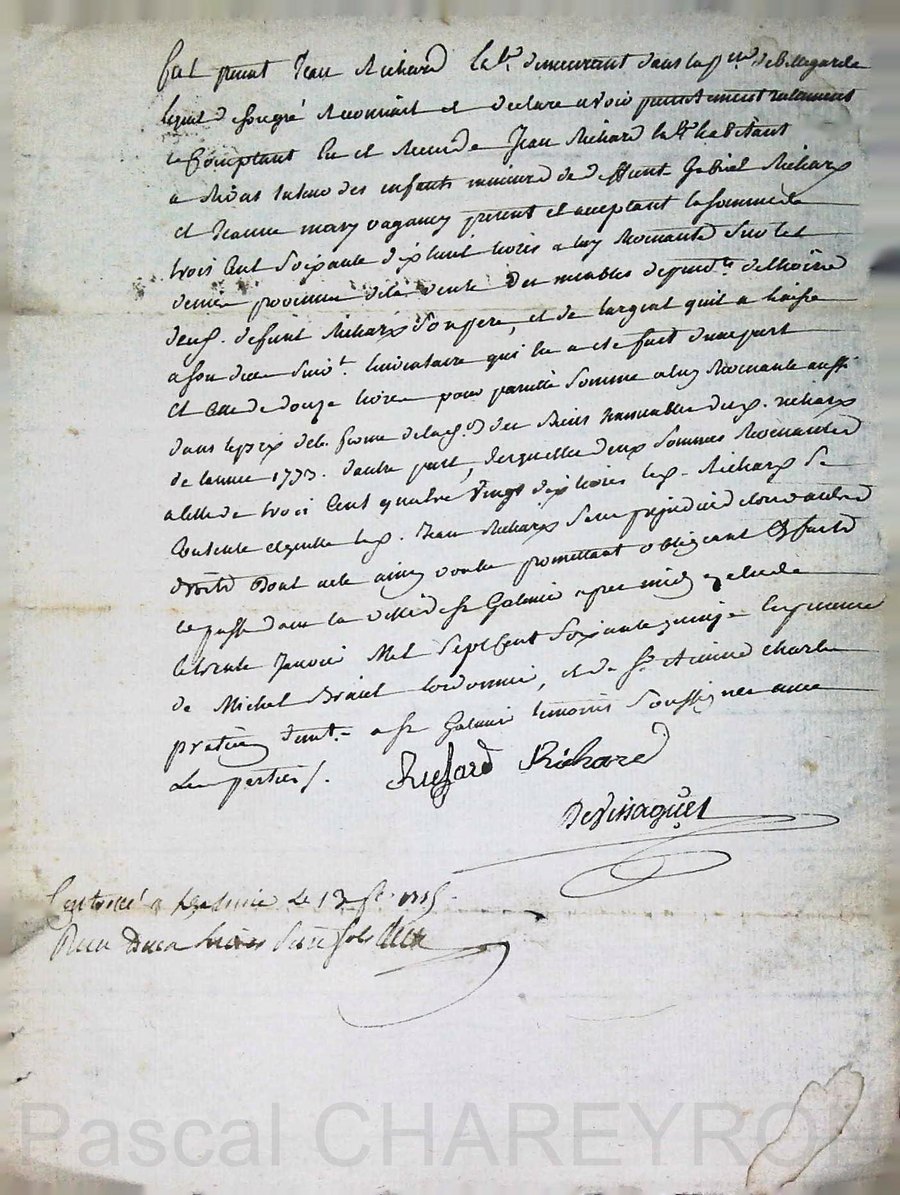 fut présent Jean Richard lab.r demeurant dans la p.sse de Bellegarde
lequel de son gré reconnait et declare avoir presentement réelement
et comptant eu et reçu de Jean Richard lab.r habitant
a Rivas tuteur des enfants mineurs de deffunt Gabriel Richard
et Jeanne mary vagancy présent et acceptant la somme de
trois cent soixante dix huit livres a luy revenante sur les
deniers provenus de la vente des meubles dependts de lhoirie
dud. defunt Richard son pere, et de largent quil a laissé
a son deces suivt. linventaire qui en a été fait dune part
et celle de douze livres pour pareille somme a luy revenante aussi
dans le prix de la ferme des biens immeubles dud. richard
de lannee 1773. dautre part, desquelles deux sommes revenantes
a celle de trois cent quatre vingt dix livres led. Richard se
contente et quitte led. Jean Richard sans prejudice dautres
droits dont acte ainsy voulu promettant obligeant &c fait
et passé dans la ville de St Galmier apres midy
le trente janvier mil sept cent soixante quinze en presence
de Michel cordonnier, et de Sr charles
praticien demt. a St Galmier temoins soussignes avec
les parties.
Richard Richard
Devissaguet
Controlé a St Galmier le 13 1775
Reçu livres sols
Pascal CHAREYRON